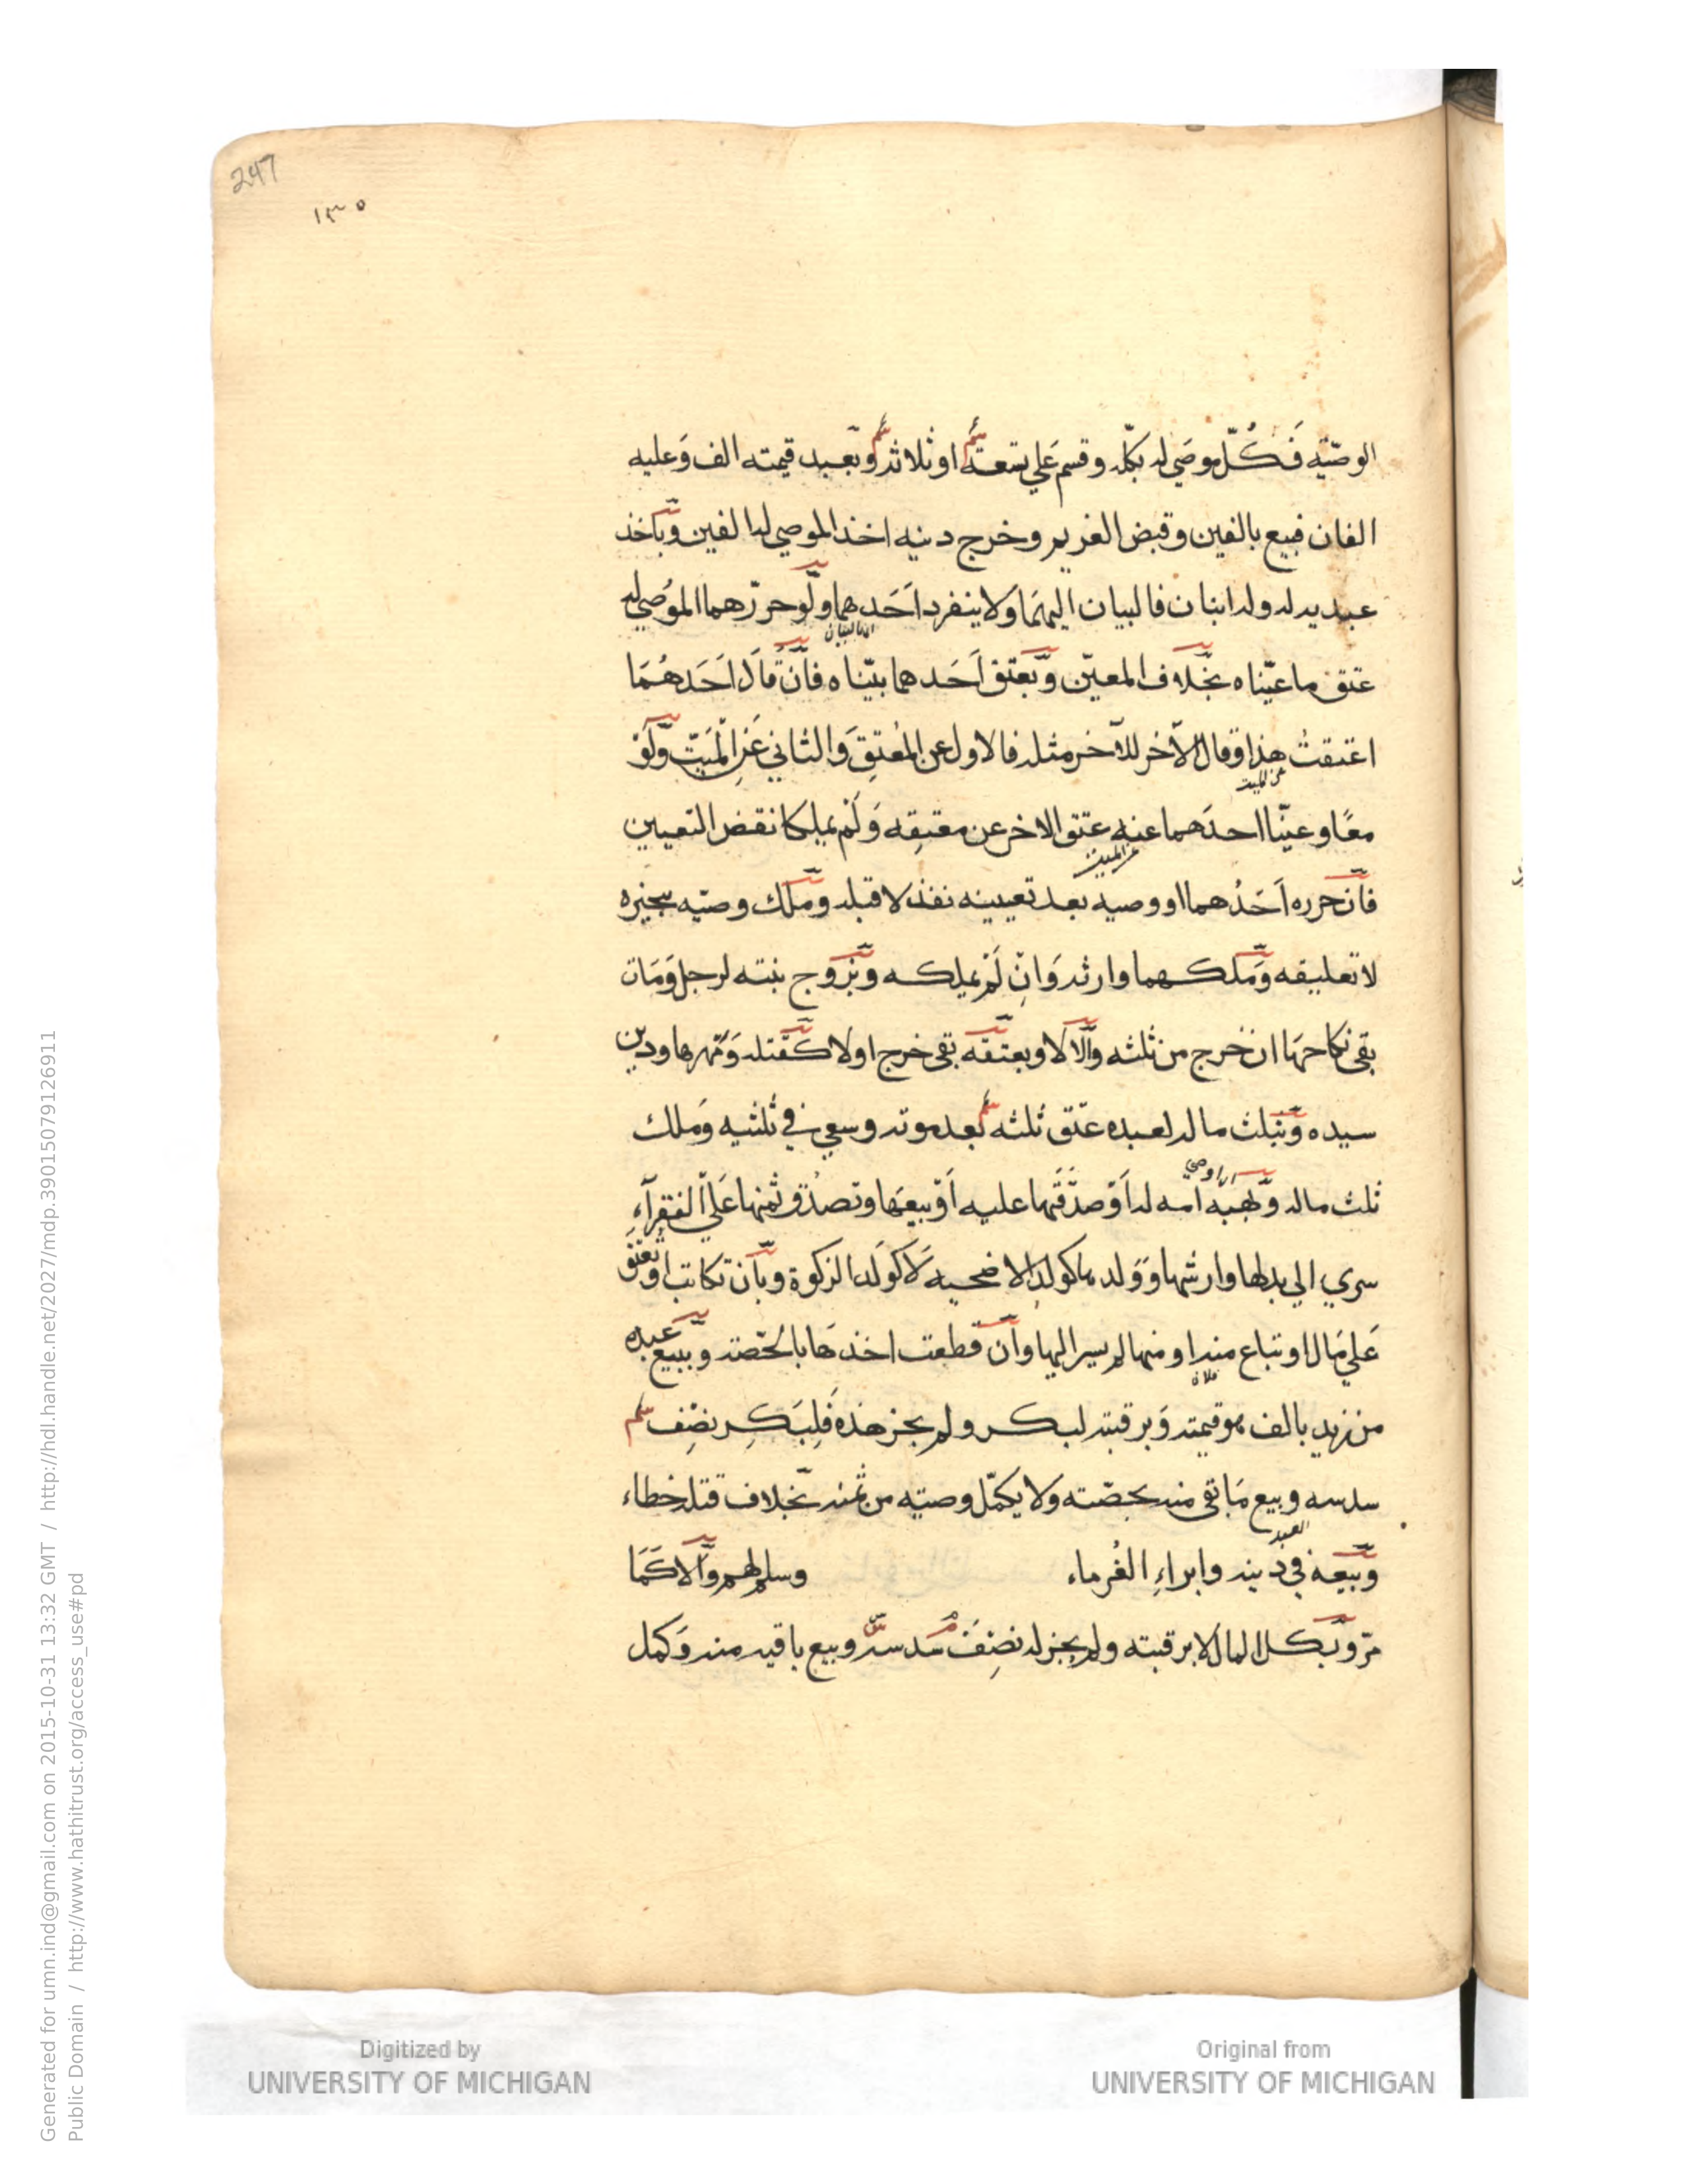 247
١٣٥
الوصيّه فَكُلّ موصَي له بكلّه وقسم عَلي تسعة او ثلاثه وبعبد قيمته الف وَعليه
الفان فبيع بالفين وقبض الغريم وخرج دينه اخذ الموصي له الفين وباخذ
عبديه له وله ابنان فالبيان اليهمَا ولا ينفرد اَحَدهما ولَو حرّرهما الموُصي له
عتق ما عيّناه بخلاف المعيّن وبعتق اَحَدهما بيّناه فان قال اَحَدهُمَا
اعتقتُ هذا وقال الآخر للآخر مثله فالاول عن المُعتِقِ وَالثاني عَن الْمَيّت ولَوْ
عن الميت
معًا وعيّنا احدَهما عنه عتق الاخر عن معتقِه وَلَمْ يملكا نقض التعيين
عن الميت
فان حرره اَحَدُهما او وصيه بعد تعيينه نفذ لا قبله وملك وصيّه تنجيزه
لا تعليقه وَملكهما وارثه وَان لَمْ يملكه وبتزوج بنته لرجل وَمَات
بقي نكاحهَا ان خرج من ثلثه والّا لا وبعتقه بقي خرج اولا كقتله وَمَهرها ودين
سيده وبثلث ماله لعبده عتق ثلثه بعد موته وسعي في ثلثيه وَملك
ثلث ماله وبهبه امه له اَوْ صدَقَتها عليه اَوْ بيعهَا وتصدّق ثمنها عَلي الفقرآءِ
سري الي بدلها وارشها وَوَلدها كولد الاضحيه لَا كولَد الزكوة وبان تكاتب او تعتق
عَلي مَال او تباع منه او منها لم يسر اليها وان قطعت اخذهَا بالحصّة وببيع عبده
من زيد بالف هو قيمته وَبرقبته لبكر ولم يجز هذه فَلِبَكر نصْف
سدسه وبيع مَا بقي منه بحصّته ولا يكمّل وصيّه من ثمنه بخلاف قتله خطاء
العبد
وبيعه في دَينه وابراءِ الغُرماء وسلم لهم والّا كَمَا
مرّ وبكل المال لا برقبته ولم يجز له نصْفُ سُدسه وبيع باقيه منه وَكمل
Digitized by
UNIVERSITY OF MICHIGAN
Original from
UNIVERSITY OF MICHIGAN
Generated for umn.ind@gmail.com on 2015-10-31 13:32 GMT / http://hdl.handle.net/2027/mdp.39015079126911
Public Domain / http://www.hathitrust.org/access_use#pd